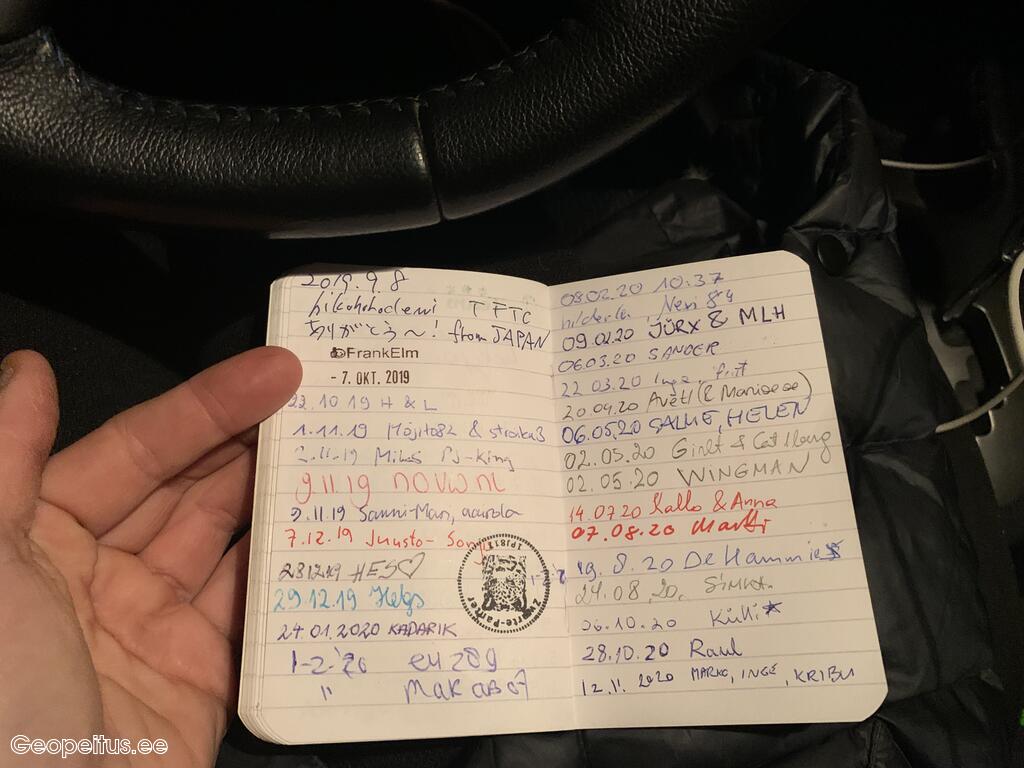 2019.9.8
hikohohodemi TFTC
ありがとう〜! from JAPAN
FrankElm
- 7. OKT. 2019
22.10 19 H & L
1.11.19 Mojito82 &
2.11.19 PJ-King
9.11.19 novwnc
9.11.19 Sanni-Mari,
7.12.19 Juusto-
28.12.19 HES♡
29.12.19 Helgs
24.01.2020 KADARIK
1-2.'20
" makab07
1PJ813
08.02.20 10.37
09.02.20 JÜRX & MLH
06.03.20 SANDER
22 03.20
20.04.20
06.05.20 HELEN
02.05.20
02.05.20 WINGMAN
14.07.20 Kallo & Anna
07.08.20 Martti
19.8.20 De Hammies
24.08.20. SIMKA.
06.10.20 Külli*
28.10.20 Raul
12.11.2020 MARKO, INGE, KRIBU
Geopeitus.ee